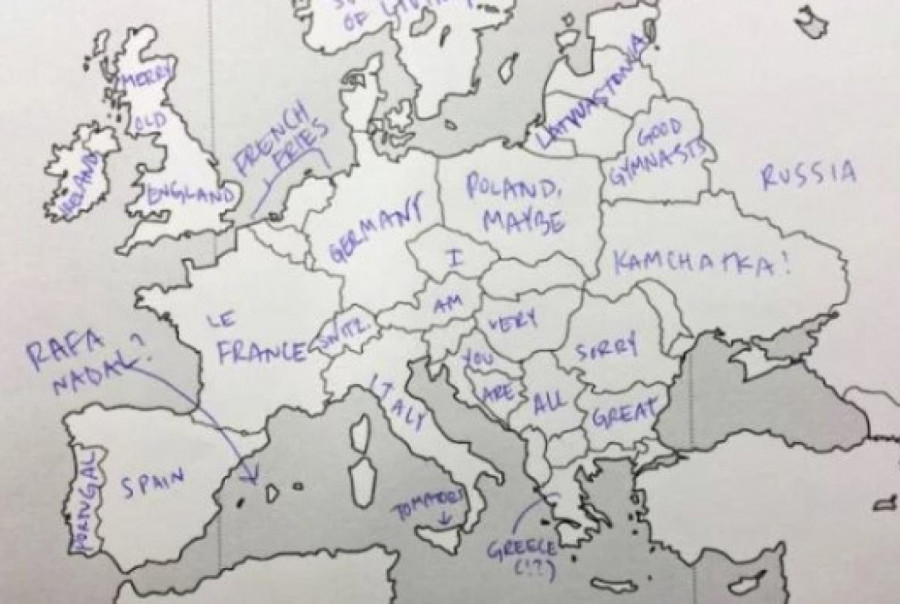 OF
MERRY
OLD
ENGLAND
IRELAND
FRENCH
FRIES
GOOD
GYMNASTS
RUSSIA
POLAND,
MAYBE
GERMANY
KAMCHATKA!
I
AM
VERY
SORRY
YOU
ARE
ALL
GREAT
LE
FRANCE
SWITZ.
ITALY
RAFA
NADAL?
PORTUGAL
SPAIN
GREECE
(!?)